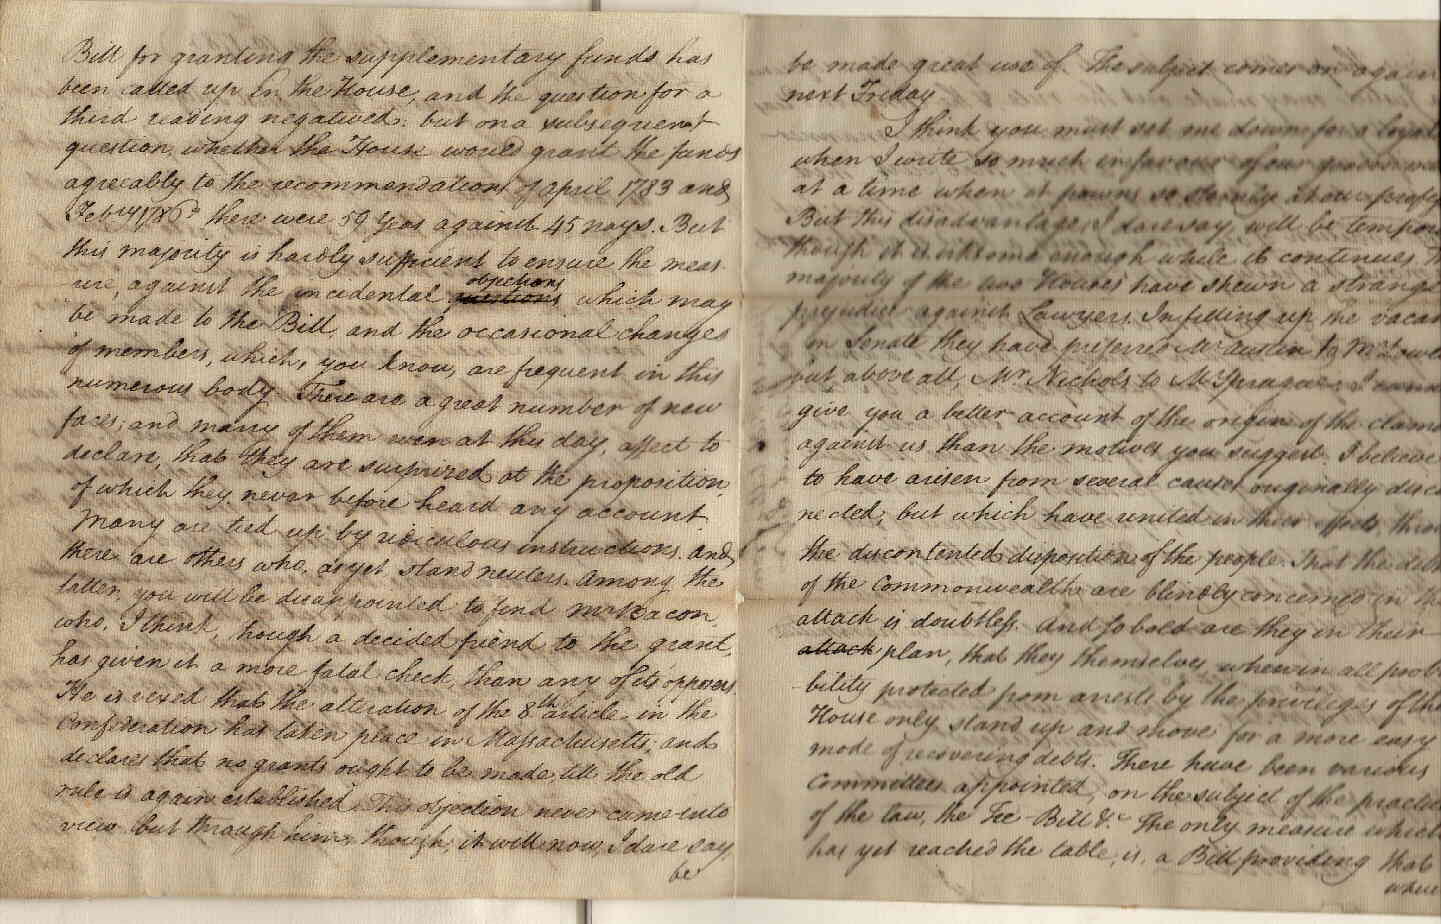 Bill for granting the supplementary funds has
been called up in the House, and the question for a
third reading negatived: but on a subsequent
question, whether the House would grant the funds
agreeably to the recommendations of April 1783 and
Feby 1786? there were 59 yeas against 45 nays. But
this majority is hardly sufficient to ensure the meas
ure, against the incidental objections which may
be made to the Bill, and the occasional changes
of members, which, you know, are frequent in this
numerous body. There are a great number of new
faces; and many of them even at this day, affect to
declare, that they are surprized at the proposition,
of which they never before heard any account.
Many are tied up by ridiculous instructions. And
there are others who, as yet stand neuters. Among the
latter, you will be disappointed to find Mr Bacon,
who, I think, though a decided friend to the grant,
has given it a more fatal check, than any of its opposers.
He is vexed that the alteration of the 8th article in the
Confederation has taken place in Massachusetts; and
declares that no grants ought to be made, till the old
rule is again established. This objection never came into
view but through him; though, it will now, I dare say,
be
be made great use of. The subject comes on again
next Friday
I think you must set me down for a
when I write so much in favour of our
at a time when it frowns so sternly
But this disadvantage, I dare say, will be
though it is irksome enough while it continues.
majority of the two Houses have shewn a strange
prejudice against Lawyers. In filling up the
in Senate they have preferred Mr Austin to Mr
but above all, Mr. Nichols to Mr Sprague. I
give you a better account of the origin of the
against us than the motives you suggest. I believe
to have arisen from several causes originally
nected; but which have united in their effects,
the discontented disposition of the people. That the
of the Commonwealth are blindly concerned in
attack is doubtless. And so bold are they in their
attack plan, that they themselves, when in all
bility protected from arrests by the privileges of the
House only, stand up and move for a more easy
mode of recovering debts. There have been various
Committees appointed, on the subject of the
of the law, the Fee-Bill &c. The only measure which
has yet reached the table, is, a Bill providing that